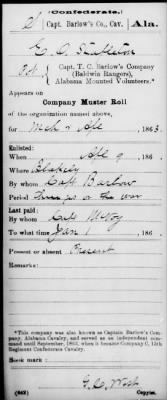 (Confederate.)
Capt. Barlow's Co., Cav. Ala.
E. O. Stapleton
Pvt., Capt. T. C. Barlow's Company
(Baldwin Rangers),
Alabama Mounted Volunteers.*
Appears on
Company Muster Roll
of the organization named above,
for Mch & Apl, 186 .
Enlisted:
When Apl 9, 186 .
Where Blakely
By whom Capt Barlow
Period or the war
Last paid:
By whom Capt
To what time Jan 1, 186 .
Present or absent Present
Remarks:
*This company was also known as Captain Barlow's Company, Alabama Cavalry, and served as an independent command until September, 1863, when it became Company C, 15th Regiment Confederate Cavalry.
Book mark:
(642) Copyist.